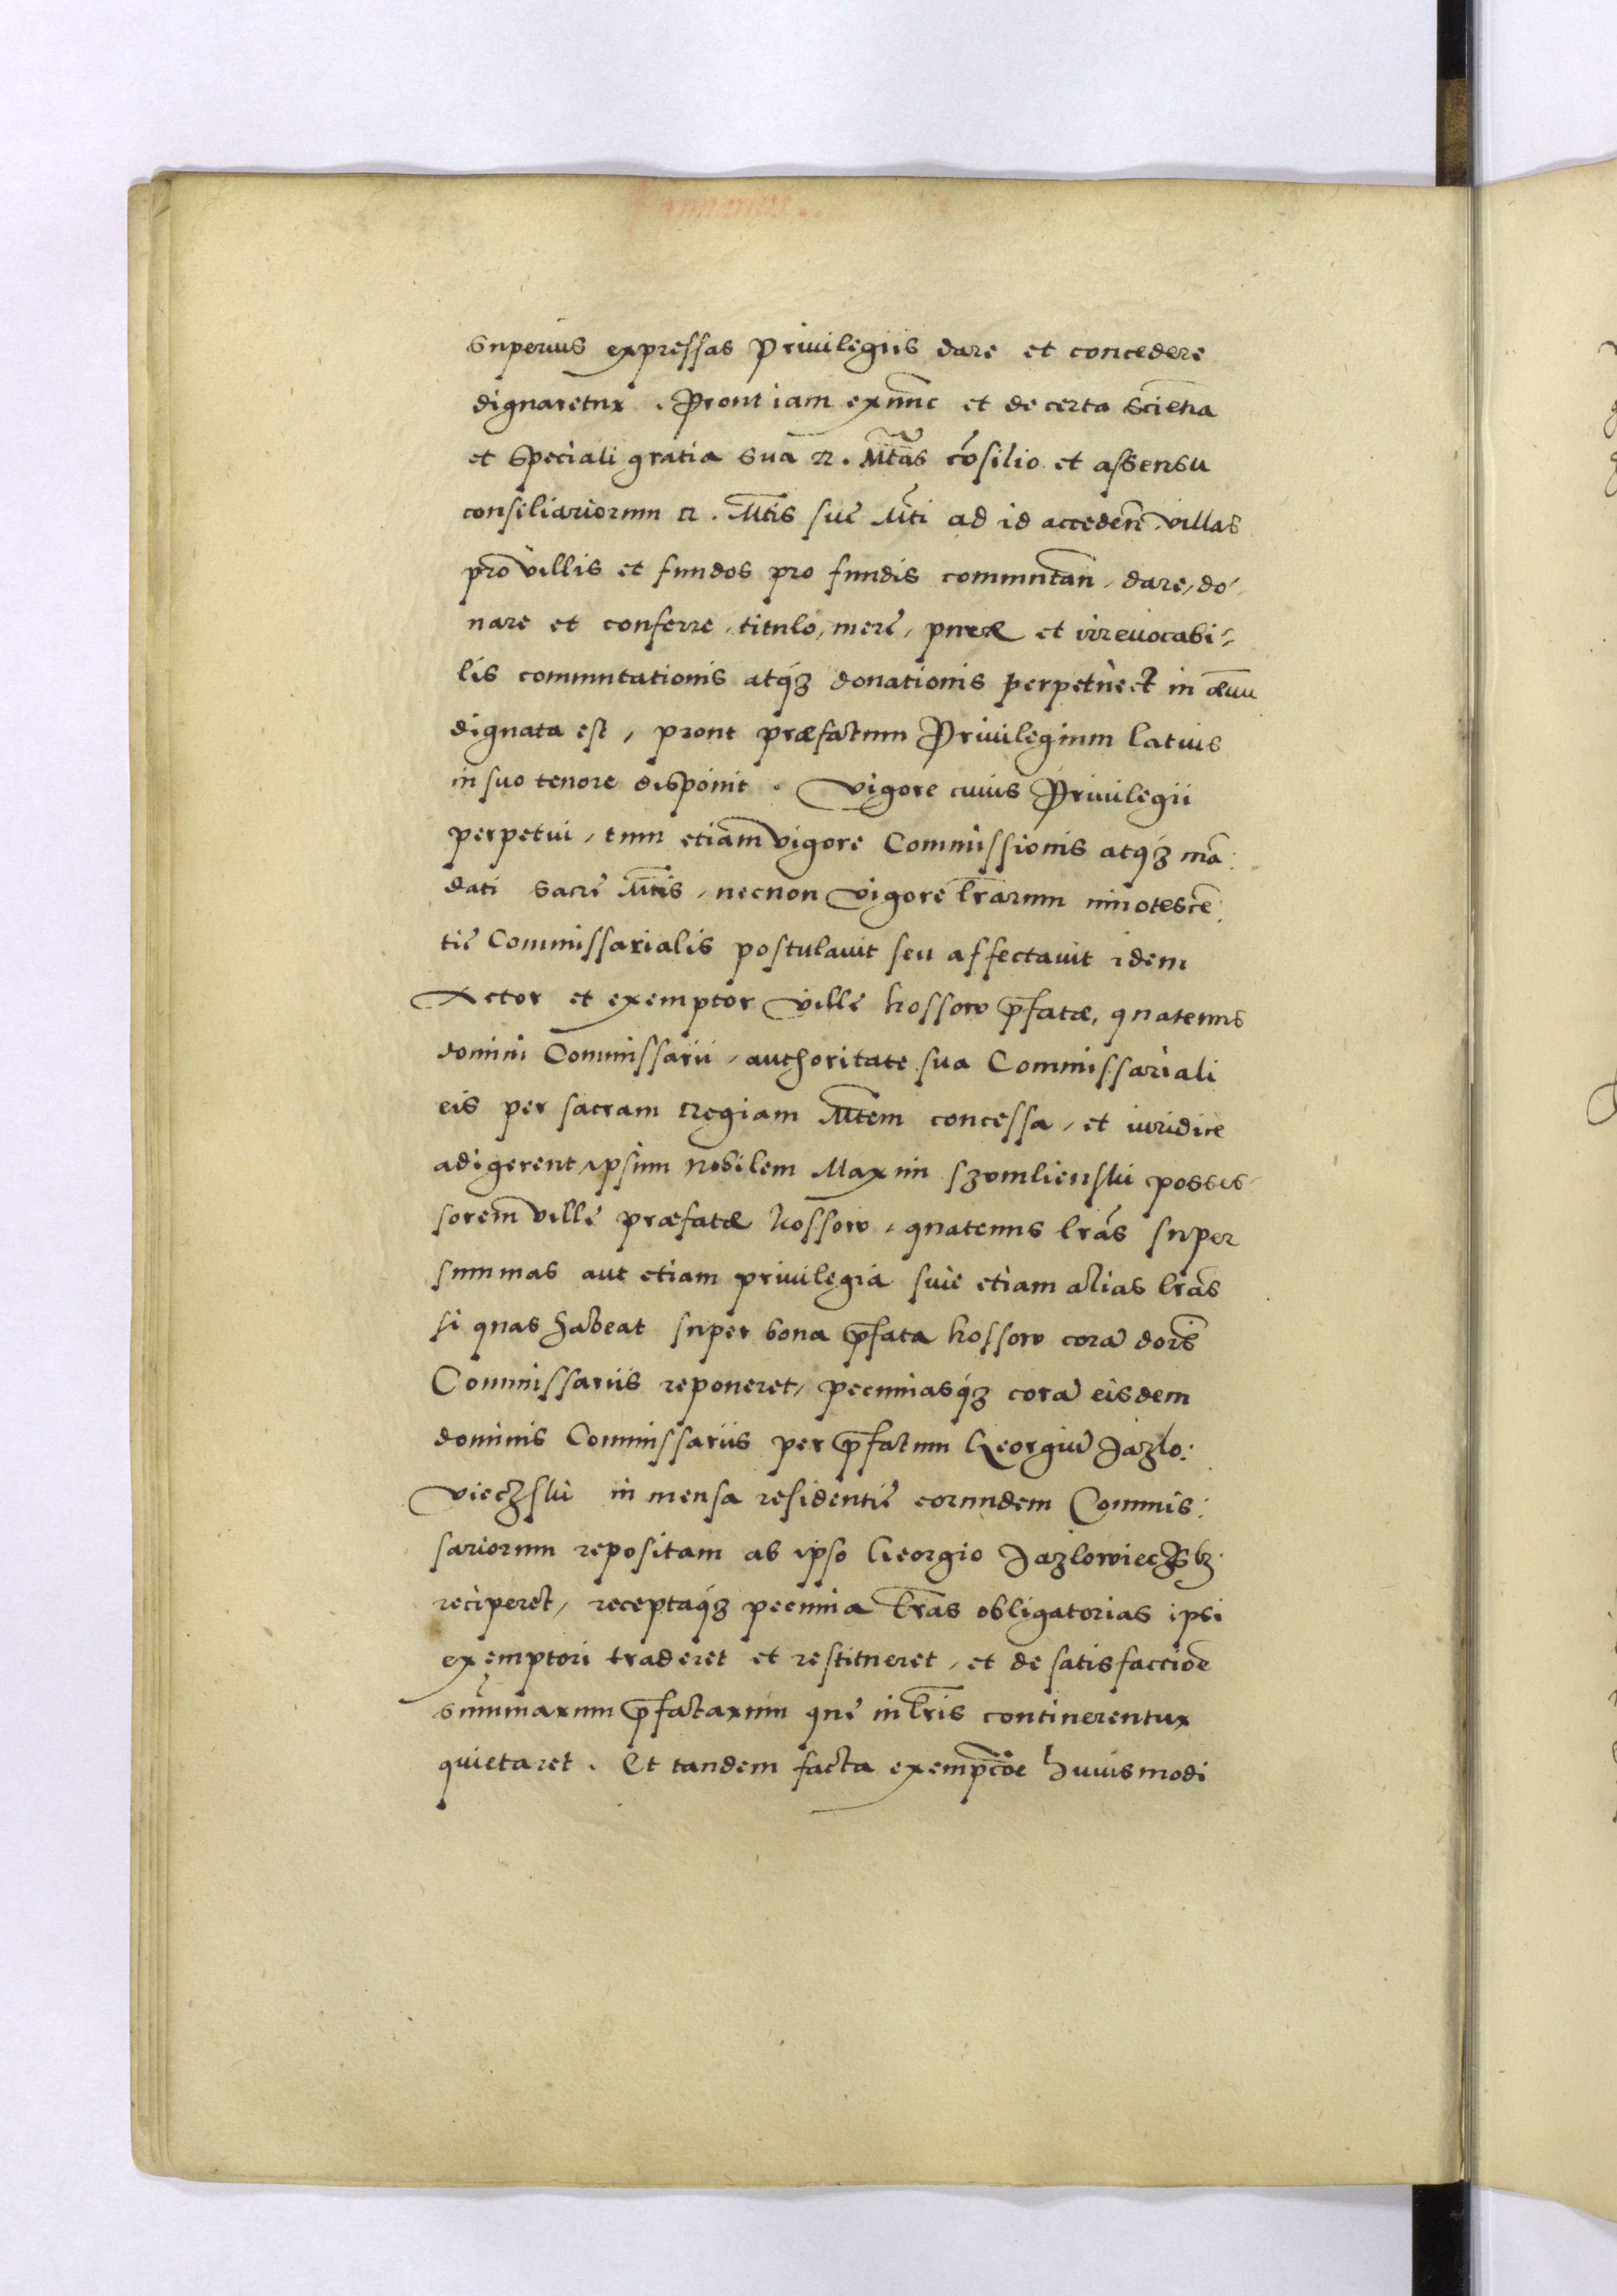 superius expressas Priuilegiis dare et concedere
dignaretur. Prout iam exnũc et de certa scieñtia
et speciali gratia sua R. Mt̃as cõsilio et assensu
consiliariorum R. Mt̃is sue Mt̃i ad id accedeñ, villas
pro villis et fundos pro fundis commutañ, dare, do-
nare et conferre, titulo, mere, puræ et irreuocabi-
lis commutationis atq꜄ donationis perpetue et in æuũ
dignata est, prout præfatum Priuilegium latius
in suo tenore disponit. Vigore cuius Priuilegii
perpetui, tum etiam vigore Commissionis atq꜄ mã:
dati sacre Mt̃is, necnon vigore lr̃arum innotescẽ:
tie Commissarialis postulauit seu affectauit idem
Actor et exemptor ville Kossow p̃fatæ, quatenus
domini Commissarii, authoritate sua Commissariali
eis per sacram Regiam Mt̃em concessa, et iuridice
adigerent ipsum nobilem Maxim Szomlienski posses-
sorem ville præfatæ Kossow, quatenus lr̃as super
summas aut etiam priuilegia siue etiam alias lr̃as
si quas habeat super bona p̃fata Kossow corã dom̃s
Commissariis reponeret, pecuniasq꜄ corã eisdem
dominis Commissariis per p̃fatum Georgiũ Jazlo:
vieczski in mensa residentie eorundem Commis:
sariorum repositam ab ipso Georgio Jazlowieczsk꜄
reciperet, receptaq꜄ pecunia lr̃as obligatorias ipsi
exemptori traderet et restitueret, et de satisfaccioẽ
summarum p̃fatarum que in lr̃is continerentur
quietaret. Et tandem facta exempc̃õe huiusmodi